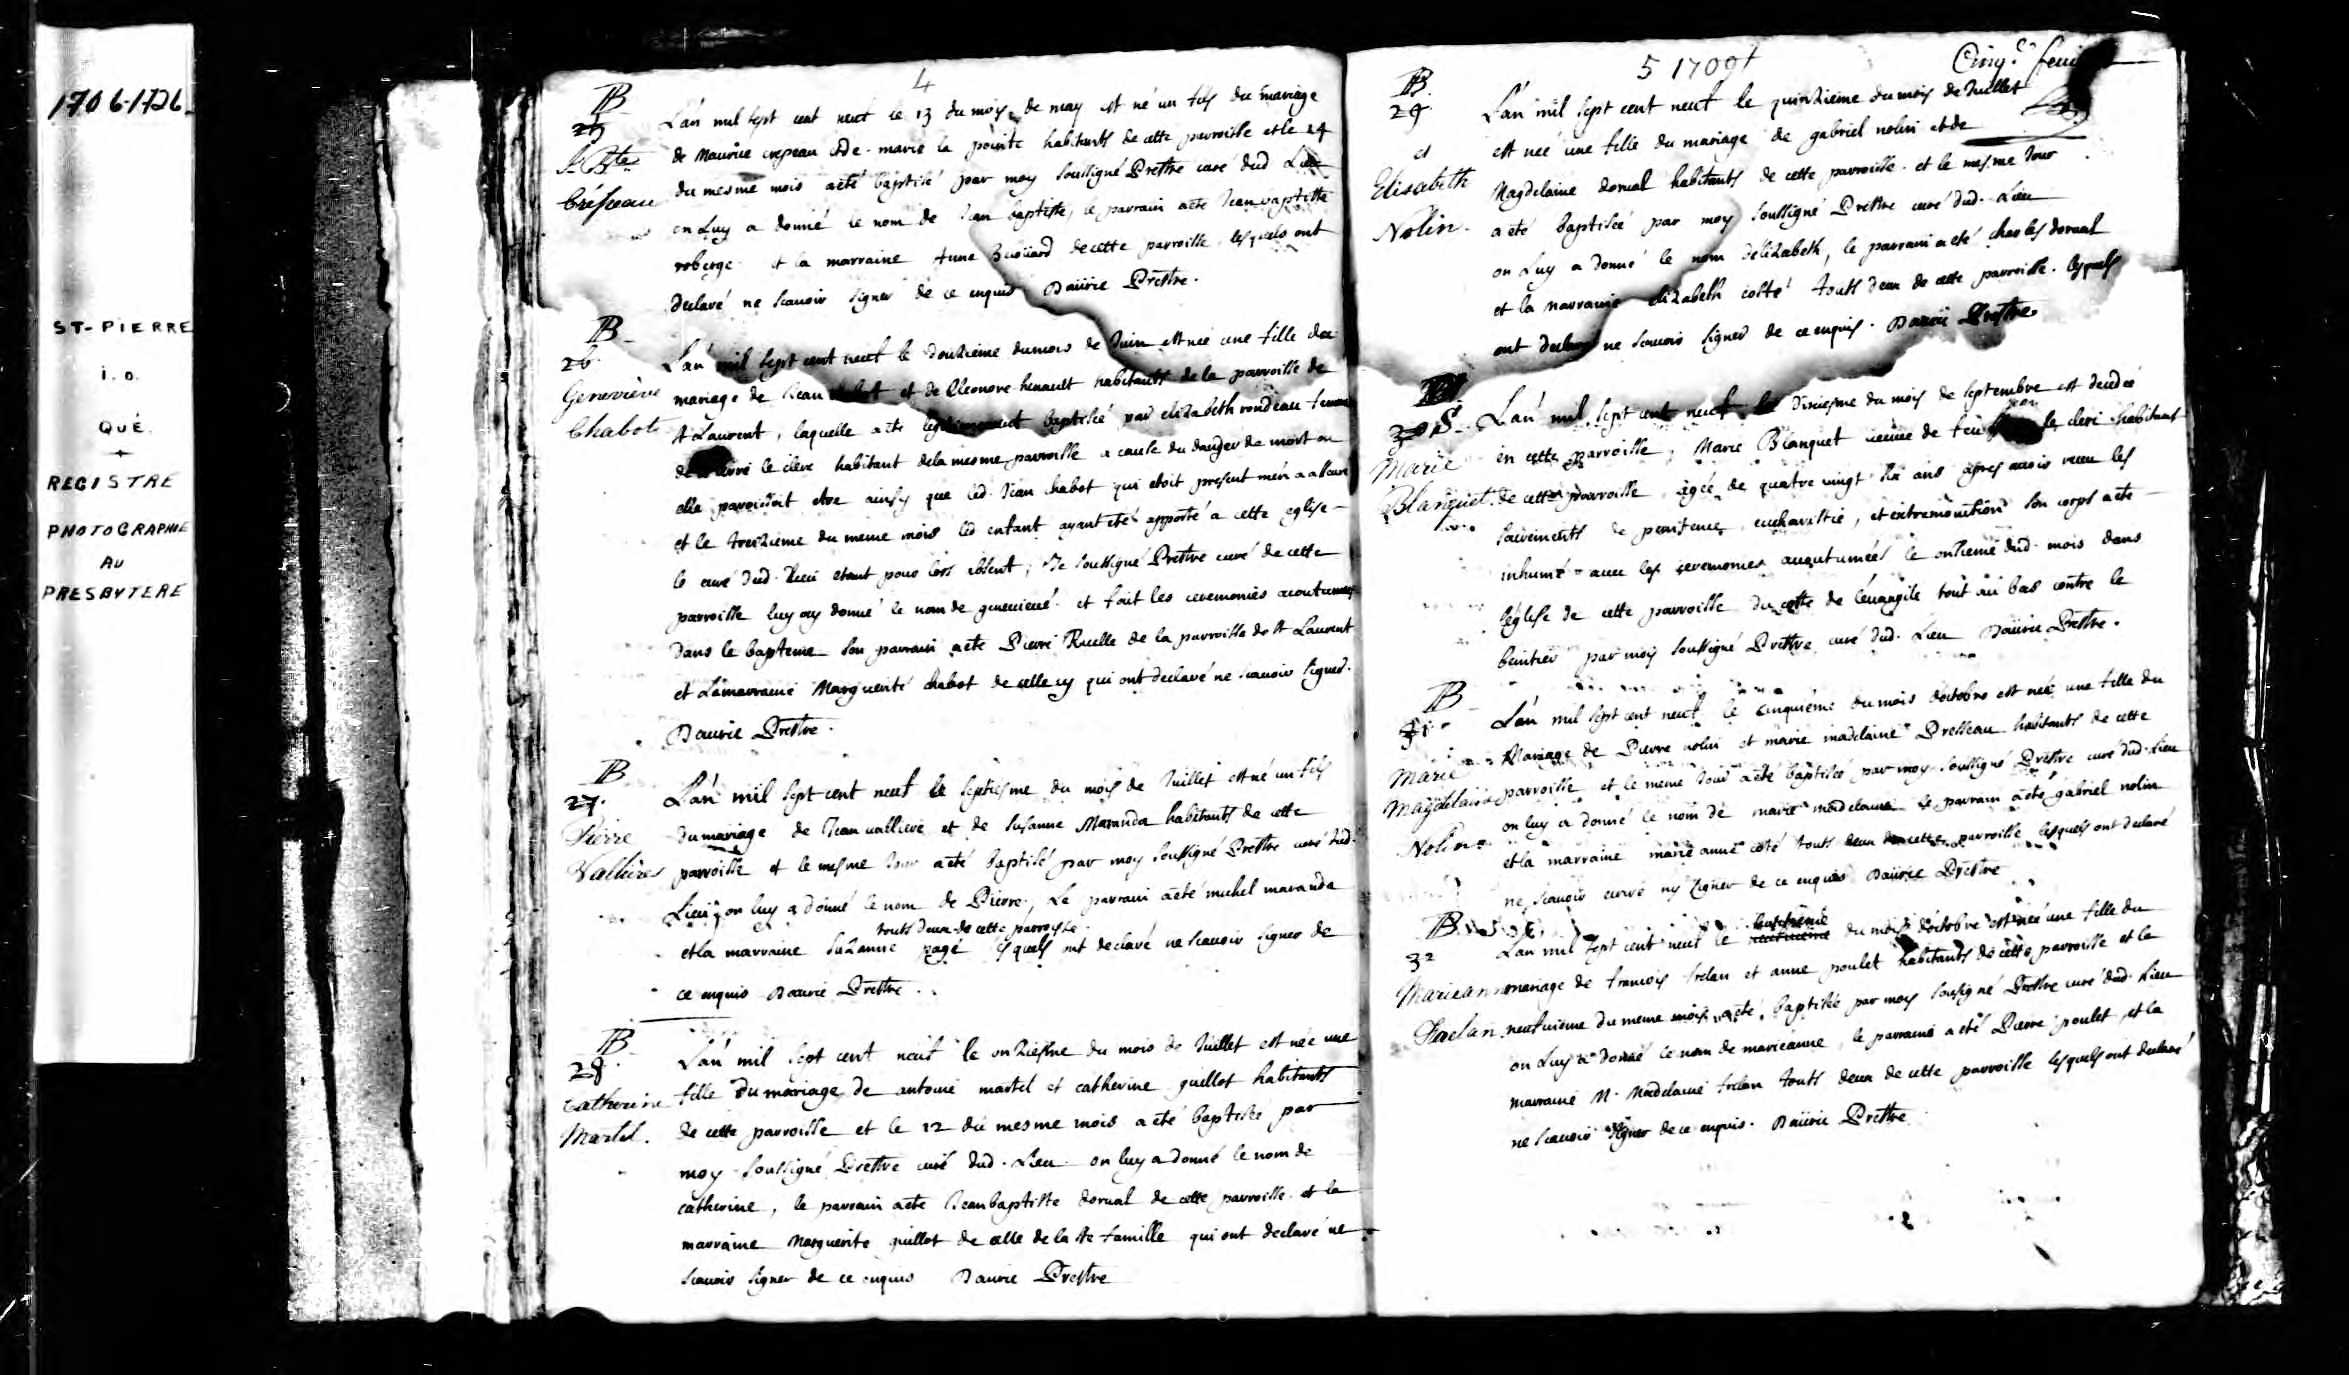 1706-1726
ST-PIERRE
i.o.
QUÉ.
REGISTRE
PHOTOGRAPHIÉ
AU
PRESBYTERE
4
B
25
J. Bte
Crépeau
L'an mil sept cent neuf le 13 du mois de may est né un fils du mariage
de Maurice crepeau et de marie la pointe habitants de cette parroisse et le 24
du mesme mois a eté baptisé par moy soussigné Prestre curé dud Lieu
on Luy a donné le nom de Jean baptiste, le parrain a ete Jean baptiste
roberge et la marraine Anne de cette parroisse lesquels ont
declaré ne scavoir signer de ce enquis Daüric Prestre.
B
26.
Geneviève
Chabot
L'an mil sept cent neuf le douzieme du mois de Juin est née une fille du
mariage de Jean et de Eleonore henault habitants de la parroisse de
st Laurent, laquelle a ete baptisée par elizabeth rondeau femme
de le habitant de la mesme parroisse a cause du danger de mort ou
elle paroissoit etre ainsy que led. Jean chabot qui etoit present m'en a assuré
et le treizieme du meme mois led enfant ayant eté apporté a cette eglise
le curé dud. Lieu etant pour lors absent, Je soussigné Prestre curé de cette
parroisse luy ay donné le nom de genevieve et fait les ceremonies acoutumées
dans le bapteme son parrain a ete Pierre Ruelle de la parroisse de st Laurent
et La marraine Marguerite chabot de celle cy qui ont declaré ne scavoir signer.
Dauric Prestre.
B
27.
Pierre
Vallières
L'an mil sept cent neuf le septiesme du mois de Juillet est né un fils
du mariage de Jean valliere et de Susanne Maranda habitants de cette
parroisse et le mesme Jour a eté baptisé par moy soussigné Prestre curé dud.
Lieu, on luy a donné le nom de Pierre, Le parrain a eté michel maranda
touts deux de cette parroisse
et la marraine Suzanne pagé lesquels ont declaré ne scavoir signer de
ce enquis Dauric Prestre.
B
28.
Catherine
Martel.
L'an mil sept cent neuf le onziesme du mois de Juillet est née une
fille du mariage de antoine martel et catherine guillot habitants
de cette parroisse et le 12 du mesme mois a eté baptisée par
moy soussigné Prestre curé dud. Lieu on luy a donné le nom de
catherine, le parrain a ete Jean baptiste dorval de cette parroisse et la
marraine Marguerite guillot de celle de la ste famille qui ont declaré ne
scavoir signer de ce enquis Dauric Prestre
5 1709
Cinq.e
B.
29.
et
Elisabeth
Nolin.
L'an mil sept cent neuf le quinzieme du mois de Juillet
est née une fille du mariage de gabriel nolin et de
Magdelaine dorval habitants de cette parroisse et le mesme Jour
a eté baptisée par moy soussigné Prestre curé dud. Lieu
on Luy a donné le nom d'elizabeth, le parrain a eté charles dorval
et la marraine elizabeth costé touts deux de cette parroisse. lesquels
ont declaré ne scavoir signer de ce enquis. Dauric Prestre.
30 S.
Marie
Blanquet.
L'an mil sept cent neuf le dixiesme du mois de septembre est decedée
en cette parroisse, Marie Blanquet veuve de feu Jean le clerc habitant
de cette parroisse agée de quatre vingt six ans apres avoir receu les
sacrements de penitence, eucharistie, et extremonction son corps a ete
inhumé avec les ceremonies acoutumées le onzieme dud. mois dans
l'église de cette parroisse du coste de l'euangile tout au bas contre le
benitier par moy soussigné Prestre curé dud. Lieu Dauric Prestre.
B
31.
Marie
Magdelaine
Nolin.
L'an mil sept cent neuf le cinquieme du mois d'octobre est née une fille du
Mariage de Pierre nolin et marie madelaine Presseau habitants de cette
parroisse et le meme Jour a eté baptisée par moy soussigné Prestre curé dud. Lieu
on luy a donné le nom de marie madelaine le parrain a eté gabriel nolin
et la marraine marie anne coté touts deux de cette parroisse lesquels ont declaré
ne scavoir ecrire ny signer de ce enquis Dauric Prestre
B.
32
Marie anne
L'an mil sept cent neuf le huictieme du mois d'octobre est née une fille du
mariage de francois frelan et anne poulet habitants de cette parroisse et le
neufuieme du meme mois a eté baptisée par moy soussigné Prestre curé dud. Lieu
on Luy a donné le nom de marieanne, le parrain a eté Pierre poulet, et la
marraine M. Madelaine frelan touts deux de cette parroisse lesquels ont declaré
ne scavoir signer de ce enquis. Dauric Prestre